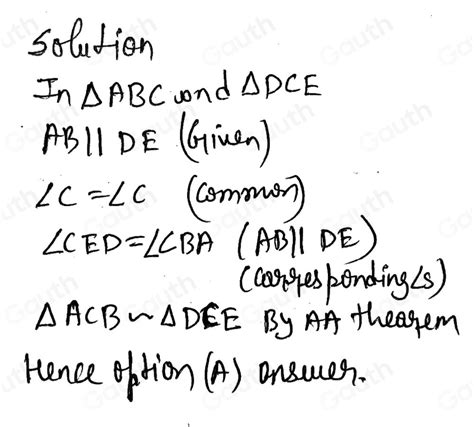 Solution
In △ABC and △DCE
AB || DE (Given)
∠C = ∠C (Common)
∠CED = ∠CBA (AB || DE)
(Corresponding ∠s)
△ACB ~ △DCE By AA theorem
Hence option (A) answer.
Gauth